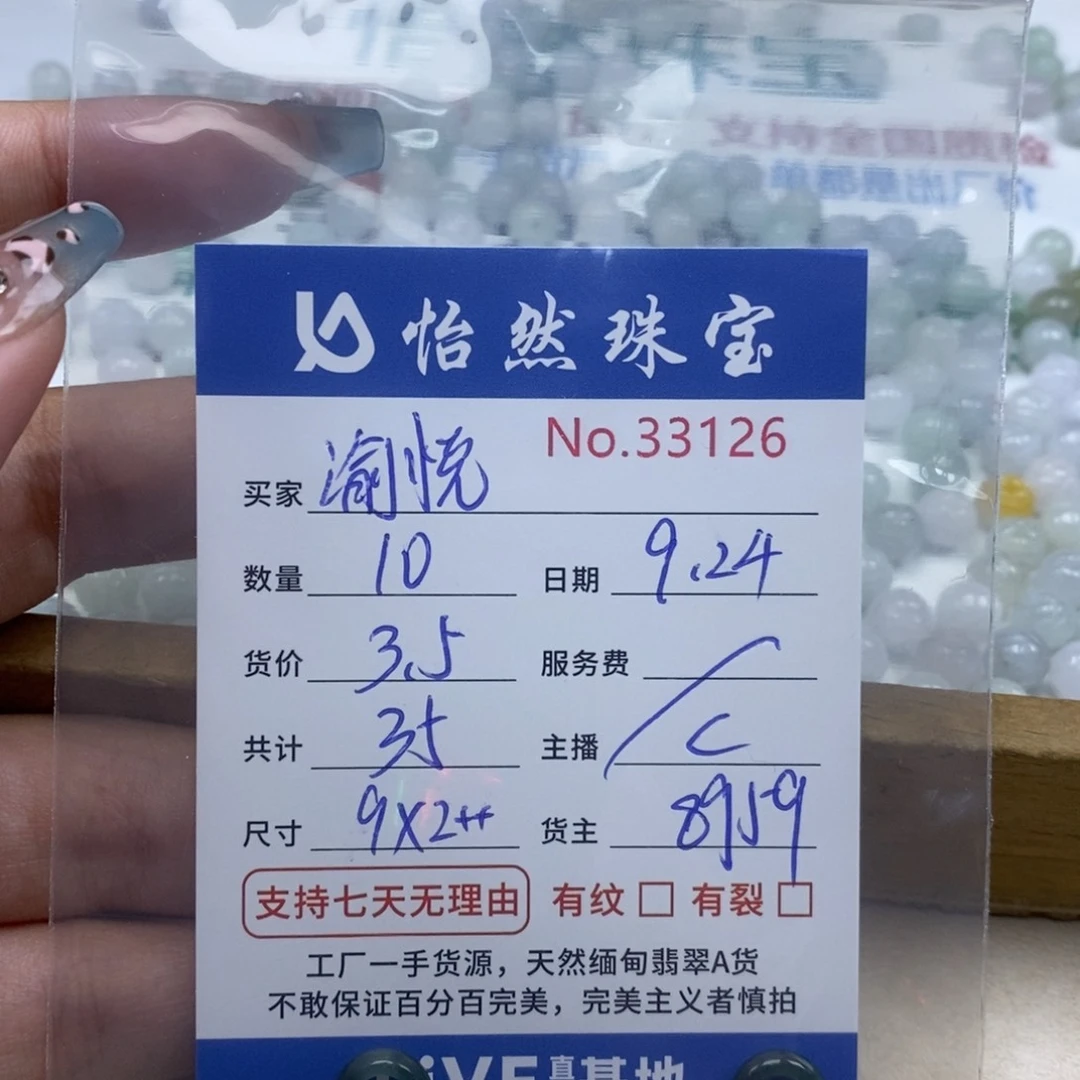 怡然珠宝
No.33126
买家 渝悦
数量 10 日期 9.24
货价 3.5 服务费
共计 35 主播 C
尺寸 9X2++ 货主 8959
支持七天无理由 有纹 □ 有裂 □
工厂一手货源，天然缅甸翡翠A货
不敢保证百分百完美，完美主义者慎拍
iVE直播基地